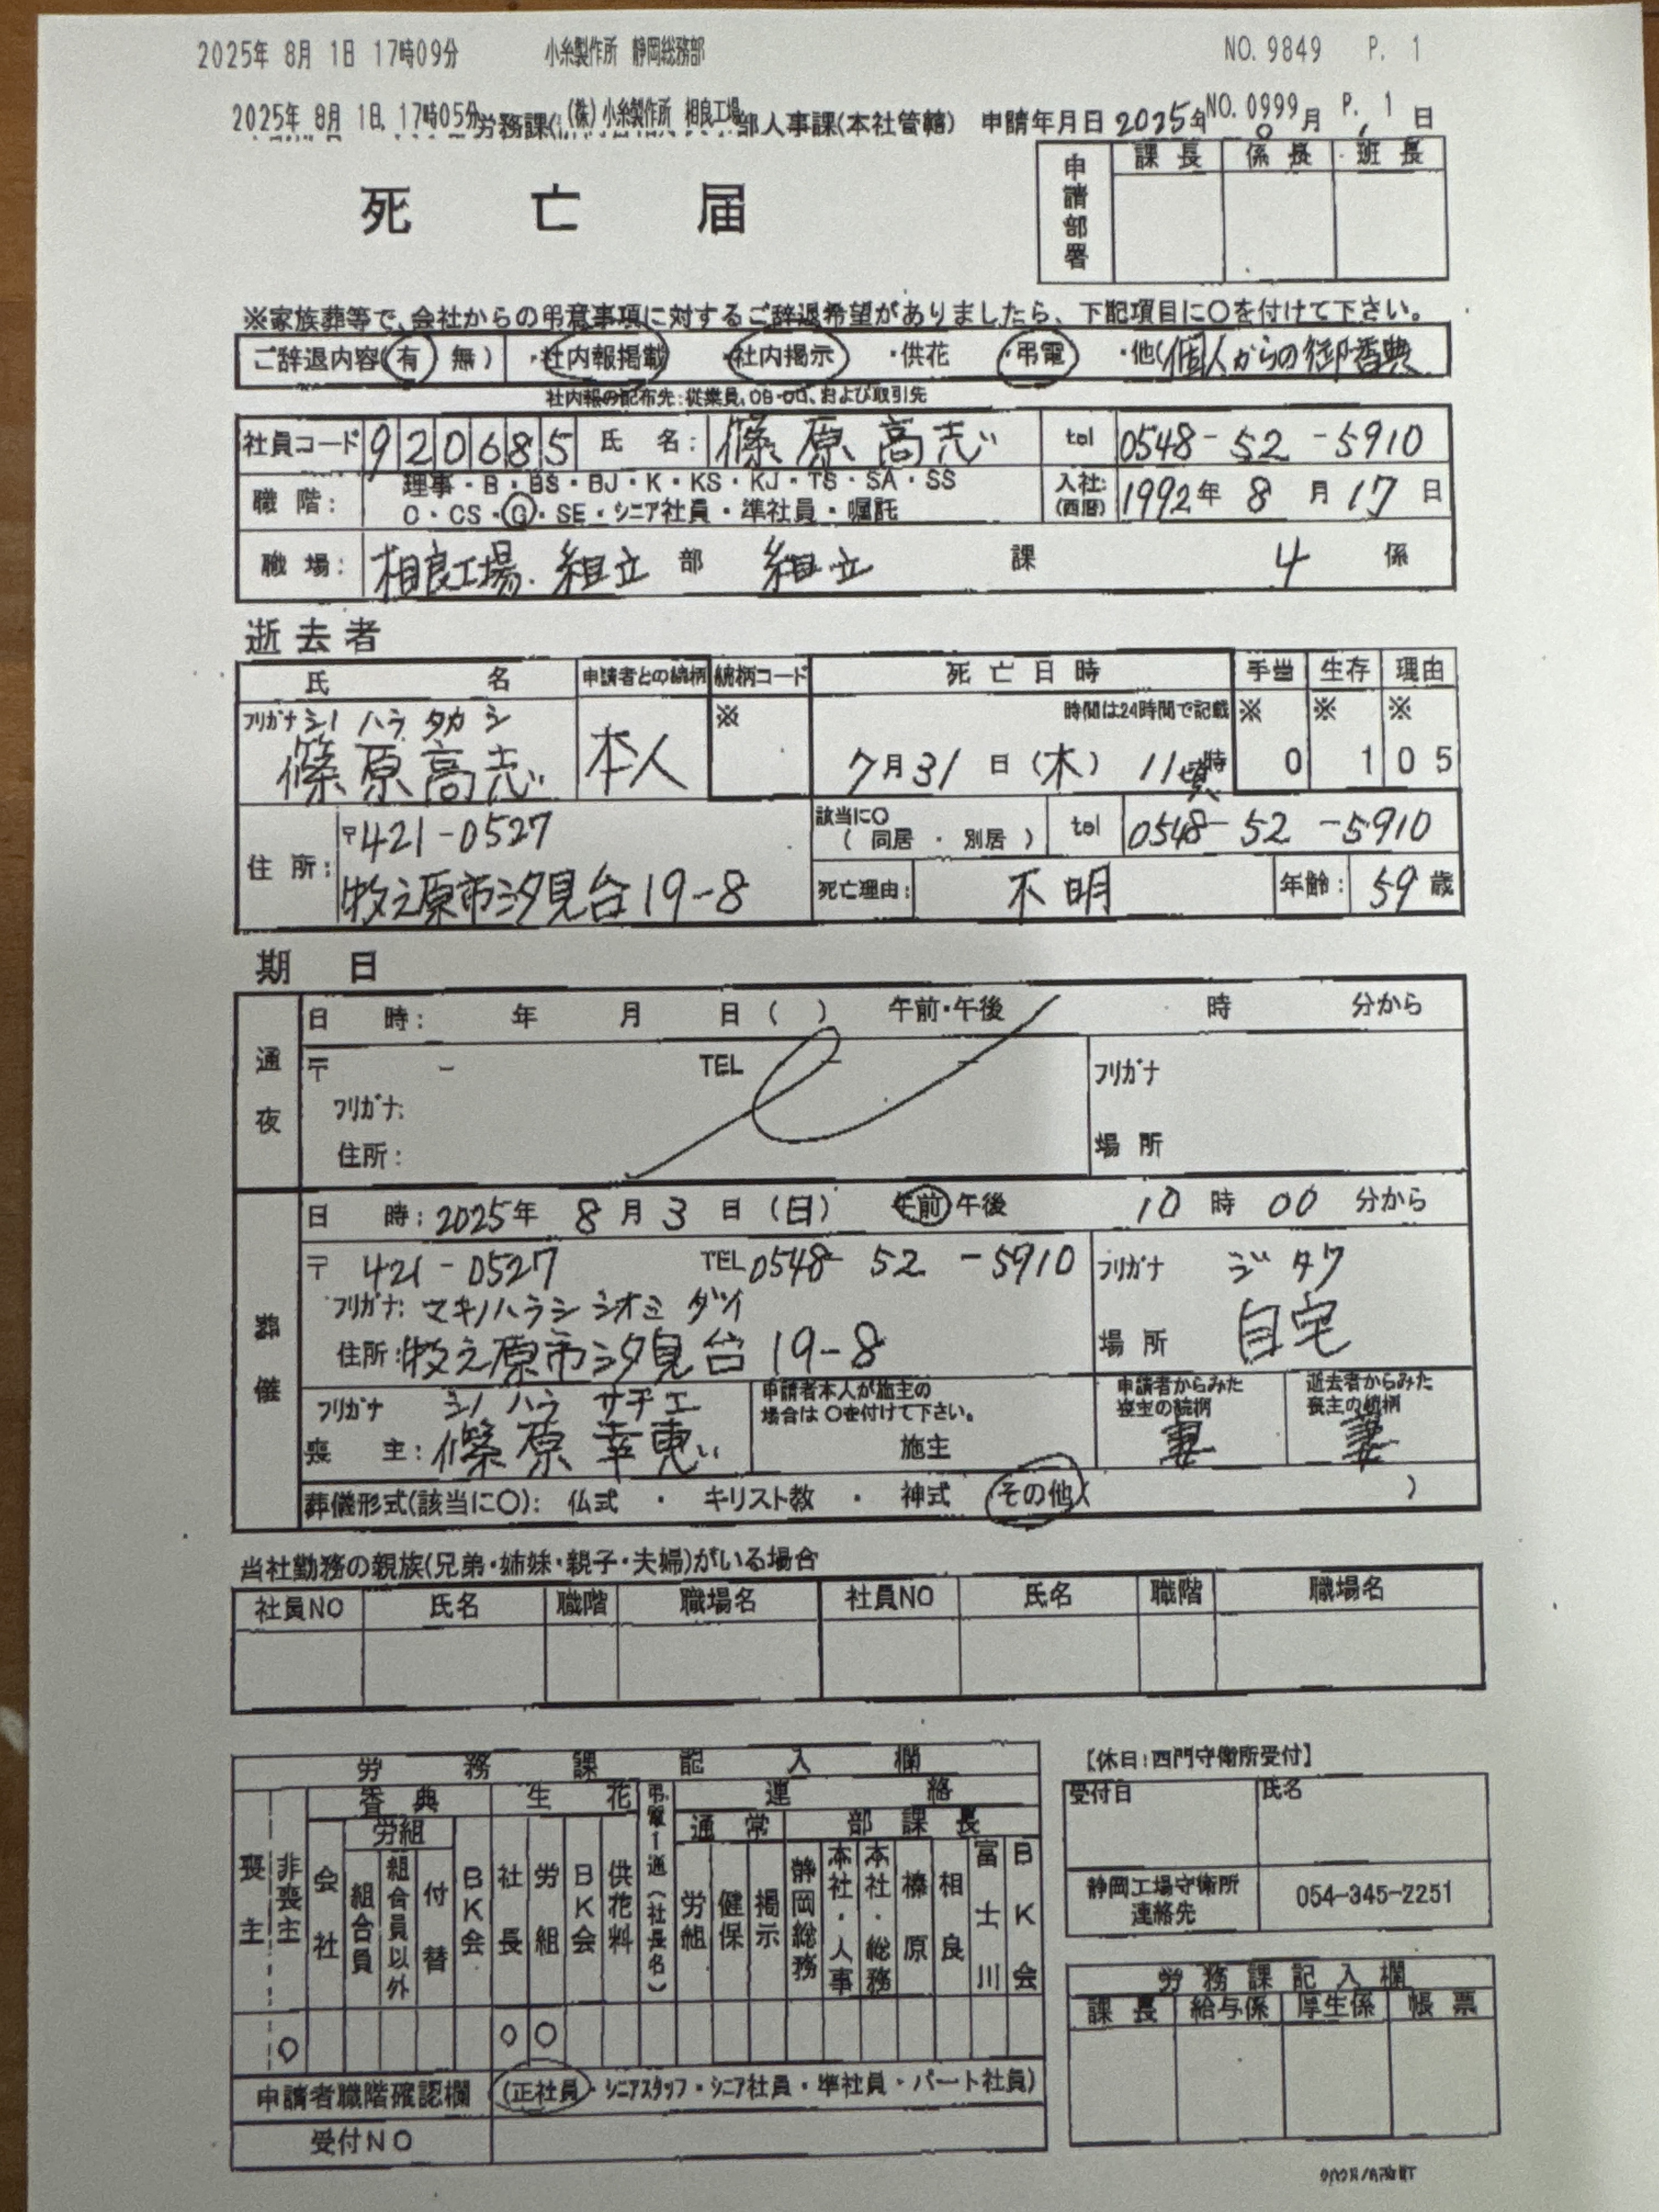 2025年 8月 1日 17時09分 小糸製作所 静岡総務部 NO. 9849 P. 1
2025年 8月 1日 17時05分 労務課( (株)小糸製作所 相良工場 部人事課(本社管轄) 申請年月日 2025年 NO. 0999 月 P. 1 日
死亡届
申請部署 課長 係長 班長
※家族葬等で、会社からの弔意事項に対するご辞退希望がありましたら、下記項目に〇を付けて下さい。
ご辞退内容(有 無) ・社内報掲載 ・社内掲示 ・供花 ・弔電 ・他(個人からの御香典
社内報の配布先:従業員、OB・OG、および取引先
社員コード 920685 氏名: 篠原高志 tel 0548-52-5910
職階: 理事・B・BS・BJ・K・KS・KJ・TS・SA・SS
C・CS・G・SE・シニア社員・準社員・嘱託
入社:(西暦) 1992年 8月 17日
職場: 相良工場. 組立 部 組立 課 4 係
逝去者
氏名 申請者との続柄 続柄コード 死亡日時 手当 生存 理由
時間は24時間で記載 ※ ※ ※
フリガナ シノハラ タカシ ※
篠原高志 本人 7月31日(木) 11頃時 0 1 05
住所: 〒421-0527
牧之原市汐見台19-8
該当に〇 (同居・別居) tel 0548-52-5910
死亡理由: 不明 年齢: 59歳
期日
通夜 日時: 年 月 日( ) 午前・午後 時 分から
〒 - TEL - - フリガナ
フリガナ:
住所: 場所
葬儀 日時: 2025年 8月 3日(日) 午前 午後 10時 00分から
〒 421-0527 TEL 0548-52-5910 フリガナ ジタク
フリガナ: マキノハラシ シオミ ダイ
住所: 牧之原市汐見台 19-8 場所 自宅
フリガナ シノハラ サチエ
喪主: 篠原幸恵
申請者本人が施主の
場合は〇を付けて下さい。
施主
申請者からみた
喪主の続柄
妻
逝去者からみた
喪主の続柄
妻
葬儀形式(該当に〇): 仏式 ・ キリスト教 ・ 神式 その他( )
当社勤務の親族(兄弟・姉妹・親子・夫婦)がいる場合
社員NO 氏名 職階 職場名 社員NO 氏名 職階 職場名
労務課記入欄
香典 生花 弔電1通(社長名) 連絡
労組 通常 部課長
喪主 非喪主 会社 組合員 組合員以外 付替 BK会 社長 労組 BK会 供花料 労組 健保 掲示 静岡総務 本社・人事 本社・総務 榛原 相良 富士川 BK会
〇 〇 〇
申請者職階確認欄 (正社員・シニアスタッフ・シニア社員・準社員・パート社員)
受付NO
【休日:西門守衛所受付】
受付日 氏名
静岡工場守衛所
連絡先
054-345-2251
労務課記入欄
課長 給与係 厚生係 帳票